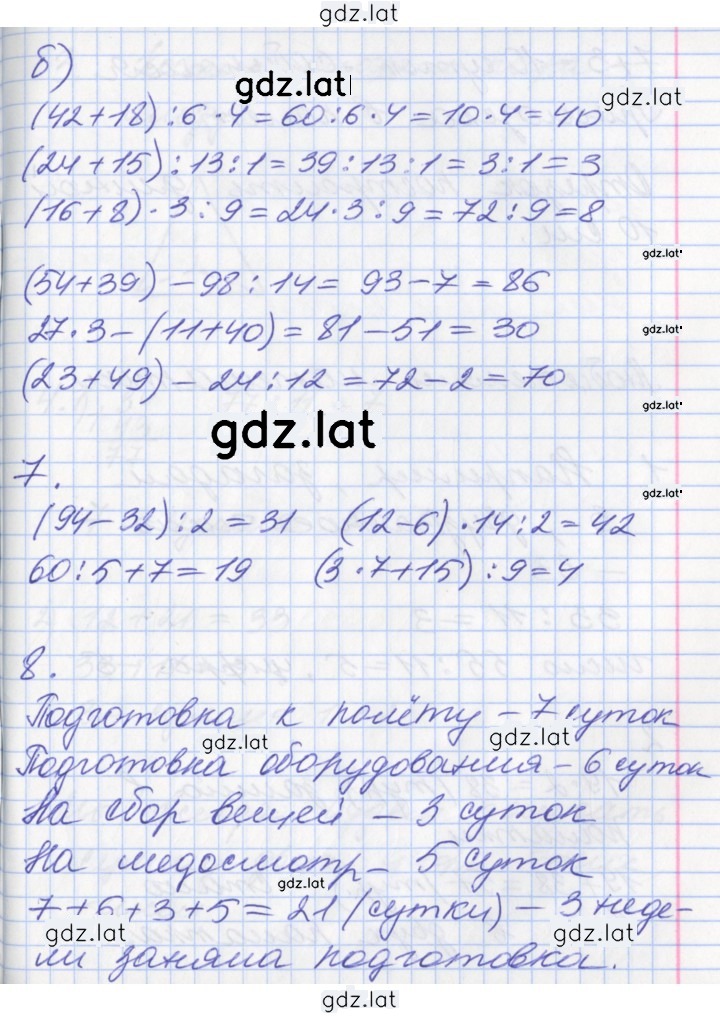 gdz.lat
б)
gdz.lat
gdz.lat
(42+18):6·4=60:6·4=10·4=40
(24+15):13:1=39:13:1=3:1=3
(16+8)·3:9=24·3:9=72:9=8
gdz.lat
(54+39)-98:14=93-7=86
27·3-(11+40)=81-51=30
gdz.lat
(23+49)-24:12=72-2=70
gdz.lat
gdz.lat
7.
gdz.lat
(94-32):2=31 (12-6)·14:2=42
60:5+7=19 (3·7+15):9=4
8.
Подготовка к полёту - 7 суток
gdz.lat gdz.lat
Подготовка оборудования - 6 суток
На сбор вещей - 3 суток
На медосмотр - 5 суток
gdz.lat
7+6+3+5=21 (сутки) - 3 неде-
gdz.lat gdz.lat
ли заняла подготовка.
gdz.lat